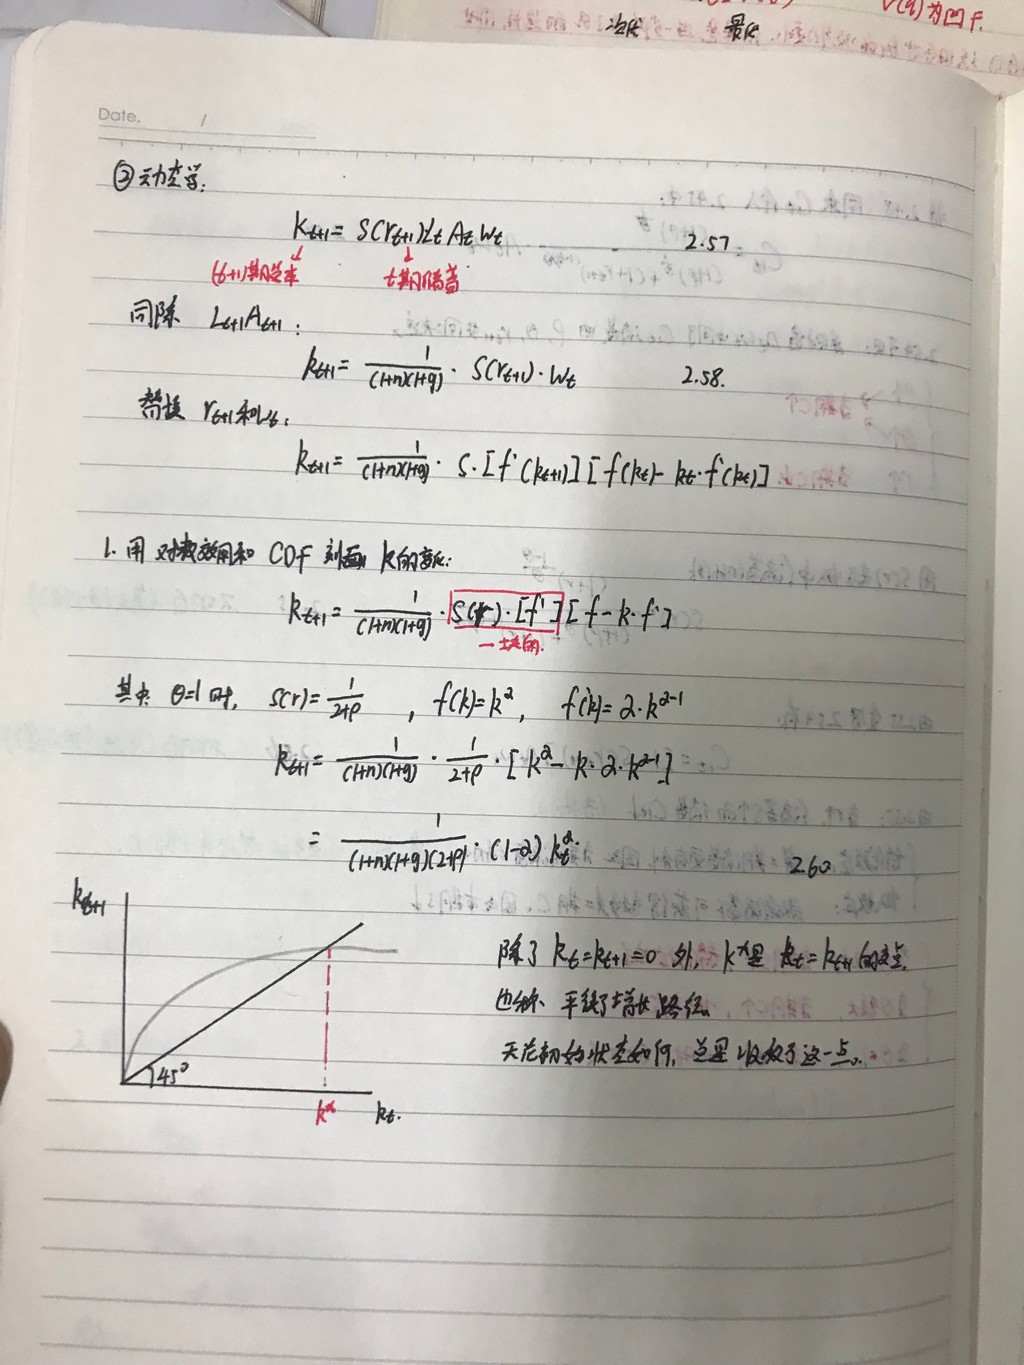 V(q)为凹f.
次优 最优
Date. /
②动态学:
Kt+1 = S(rt+1) Lt At Wt 2.57
(t+1)期总资本 t期储蓄
同除 Lt+1At+1:
kt+1 = 1/(1+n)(1+g) · S(rt+1) · Wt 2.58.
替换 rt+1和wt:
kt+1 = 1/(1+n)(1+g) · S · [f'(kt+1)] [f(kt) - kt · f'(kt)]
1. 用对数效用和 CDF 刻画 k的变化:
kt+1 = 1/(1+n)(1+g) · S(r) · [f'] [f - k · f']
一定的.
其中 θ=1 时, s(r) = 1/2+ρ , f(k) = k^α, f'(k) = α · k^α-1
kt+1 = 1/(1+n)(1+g) · 1/2+ρ · [k^α - k · α · k^α-1]
= 1/(1+n)(1+g)(2+ρ) · (1-α) kt^α. 2.60
kt+1
除了 kt = kt+1 = 0 外, k*是 kt = kt+1 的交点.
也称 平衡增长路径.
无论初始状态如何, 总是收敛于这一点.
45°
k* kt.